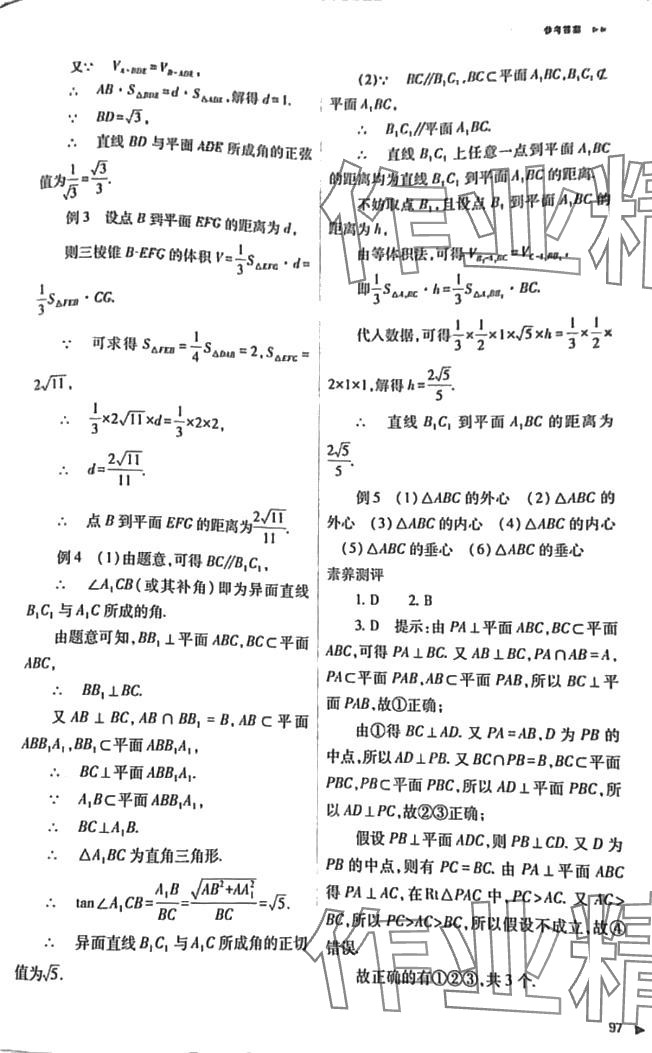 参考答案
又∵ V_{A-BDE}=V_{B-ADE},
∴ AB·S_{△BDE}=d·S_{△ADE},解得 d=1.
∵ BD=√3,
∴ 直线 BD 与平面 ADE 所成角的正弦
值为 1/√3=√3/3.
例 3 设点 B 到平面 EFG 的距离为 d,
则三棱锥 B-EFG 的体积 V=1/3 S_{△EFG}·d=
1/3 S_{△FEB}·CG.
∵ 可求得 S_{△FEB}=1/4 S_{△DAB}=2,S_{△EFG}=
2√11,
∴ 1/3×2√11×d=1/3×2×2,
∴ d=2√11/11.
∴ 点 B 到平面 EFG 的距离为 2√11/11.
例 4 (1)由题意,可得 BC//B₁C₁,
∴ ∠A₁CB(或其补角)即为异面直线
B₁C₁ 与 A₁C 所成的角.
由题意可知,BB₁⊥平面 ABC,BC⊂平面
ABC,
∴ BB₁⊥BC.
又 AB⊥BC,AB∩BB₁=B,AB⊂平面
ABB₁A₁,BB₁⊂平面 ABB₁A₁,
∴ BC⊥平面 ABB₁A₁.
∵ A₁B⊂平面 ABB₁A₁,
∴ BC⊥A₁B.
∴ △A₁BC 为直角三角形.
∴ tan∠A₁CB=A₁B/BC=√(AB²+AA₁²)/BC=√5.
∴ 异面直线 B₁C₁ 与 A₁C 所成角的正切
值为√5.
(2)∵ BC//B₁C₁,BC⊂平面 A₁BC,B₁C₁⊄
平面 A₁BC,
∴ B₁C₁//平面 A₁BC.
∴ 直线 B₁C₁ 上任意一点到平面 A₁BC
的距离均为直线 B₁C₁ 到平面 A₁BC 的距离.
不妨取点 B₁,且设点 B₁ 到平面 A₁BC 的
距离为 h,
由等体积法,可得 V_{B₁-A₁BC}=V_{C-A₁BB₁},
即 1/3 S_{△A₁BC}·h=1/3 S_{△A₁BB₁}·BC.
代入数据,可得 1/3×1/2×1×√5×h=1/3×1/2×
2×1×1,解得 h=2√5/5.
∴ 直线 B₁C₁ 到平面 A₁BC 的距离为
2√5/5.
例 5 (1)△ABC 的外心 (2)△ABC 的
外心 (3)△ABC 的内心 (4)△ABC 的内心
(5)△ABC 的垂心 (6)△ABC 的垂心
素养测评
1. D 2. B
3. D 提示:由 PA⊥平面 ABC,BC⊂平面
ABC,可得 PA⊥BC. 又 AB⊥BC,PA∩AB=A,
PA⊂平面 PAB,AB⊂平面 PAB,所以 BC⊥平
面 PAB,故①正确;
由①得 BC⊥AD. 又 PA=AB,D 为 PB 的
中点,所以 AD⊥PB. 又 BC∩PB=B,BC⊂平面
PBC,PB⊂平面 PBC,所以 AD⊥平面 PBC,所
以 AD⊥PC,故②③正确;
假设 PB⊥平面 ADC,则 PB⊥CD. 又 D 为
PB 的中点,则有 PC=BC. 由 PA⊥平面 ABC
得 PA⊥AC,在 Rt△PAC 中,PC>AC. 又 AC>
BC,所以 PC>AC>BC,所以假设不成立,故④
错误.
故正确的有①②③,共 3 个.
97
作业精
作业精